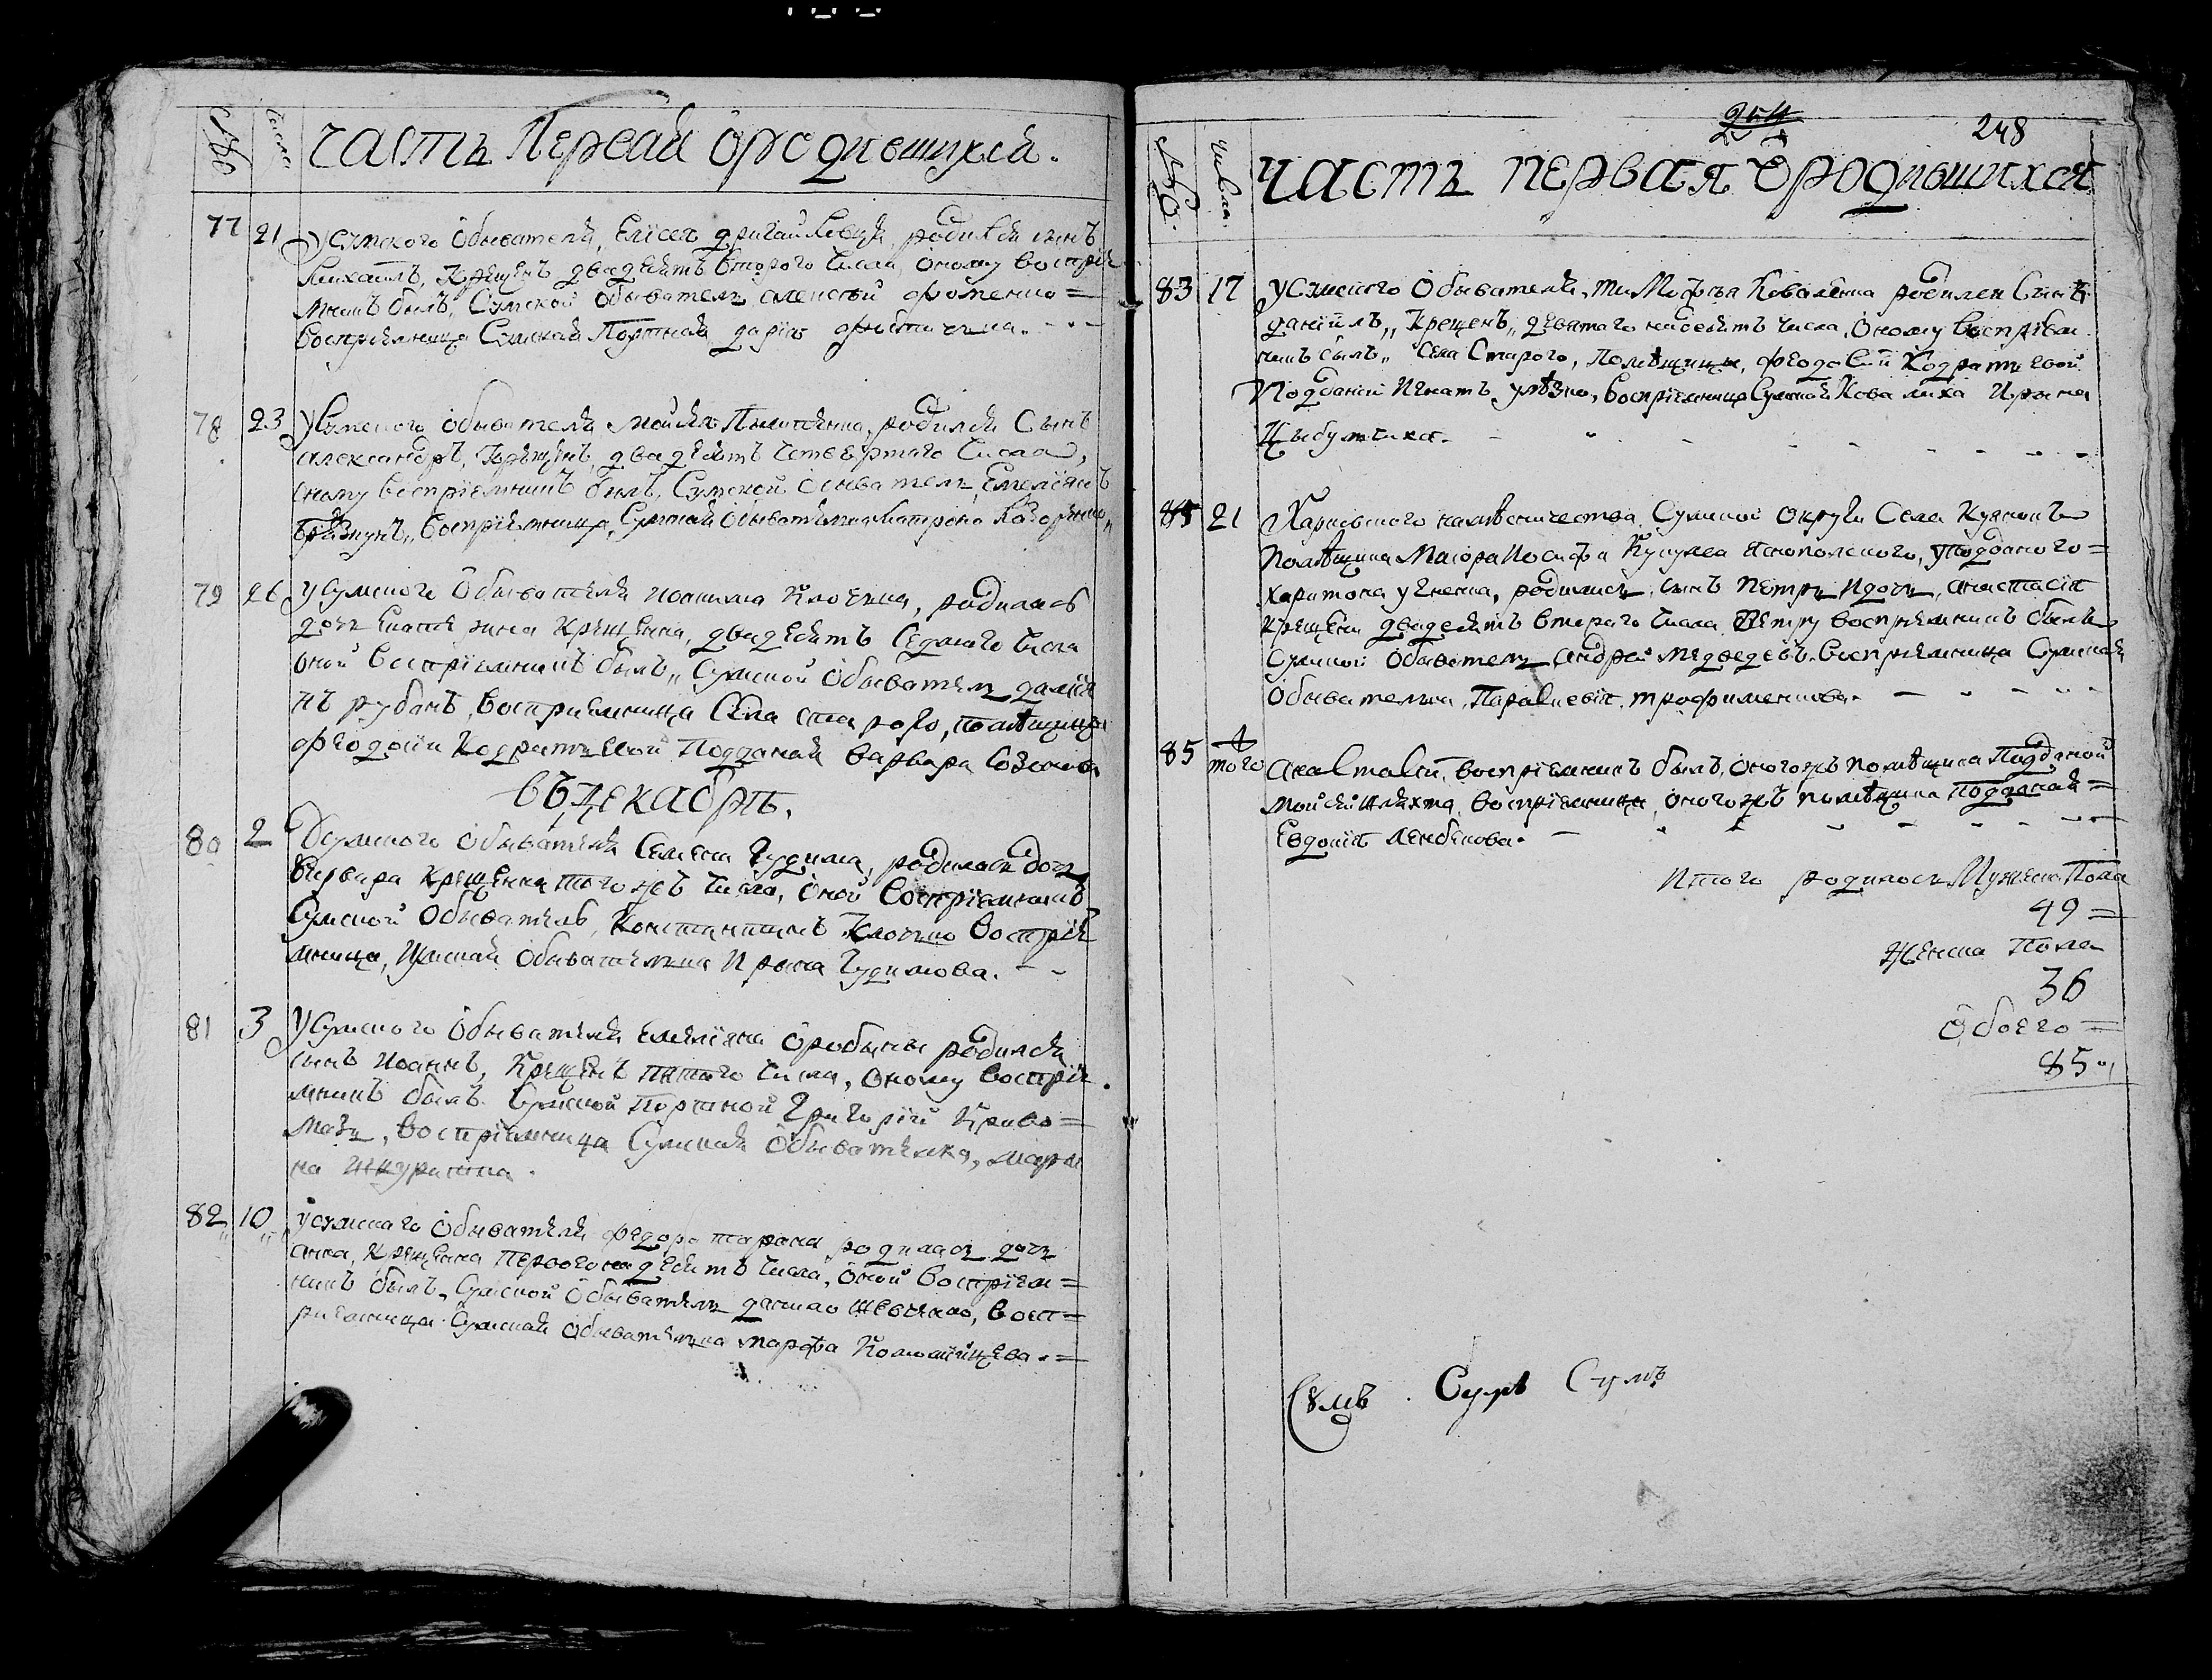 № Числа Часть Первая ородившихся.
77 21 У сумского Обывателя, Елисея родился сынъ
Михаилъ, Крещенъ двадесять второго числа, оному воспріе
мникъ былъ, Сумской Обыватель алексѣй фоменко=
воспріемница Сумская Портная дарія
78 23 У Сумского обывателя Моисея Пилипенка, родился Сынъ
александръ, Крещенъ, двадесять четвертаго числа,
оному воспріемникъ былъ, Сумской обыватель, Емеліянъ
воспріемница, Сумская обывателка Матрона
79 26 У Сумского Обывателя иоакима Клоченка, родилась
дочь Екатерина Крещенна, двадесять Седмаго числа
оной воспріемникъ былъ, Сумской Обыватель даміа
нъ рубанъ, воспріемница Села старого, помѣщицы
феодосіи Кодратьевой Подданая варвара
въ декабрѣ.
80 2 У Сумского Обывателя Семена Чудима, родилась дочь
варвара Крещенна того жъ числа, оной воспріемникъ
Сумской Обыватель, Константинъ Клочко воспріе
мница, Сумская Обывателка Ирина Чудимова.
81 3 У Сумского Обывателя Емеліяна Оробьова родился
сынъ Иоаннъ, Крещенъ пятаго числа, оному воспріе
мникъ былъ Сумской Портной Григорій Криво=
мазъ, воспріемница Сумская Обывателка, мари
на Шкурипина.
82 10 У сумскаго Обывателя федора тарана родилась дочь
анна, Крещенна первогонадесять числа, оной воспріем=
никъ былъ, Сумской Обыватель данило Шевченко, восп=
риемница Сумская Обывателка марфа Коломійцева.=
248
№ Числа Часть первая Ородившихся
83 17 У Сумского Обывателя, Тимофѣя Коваленка родился Сынъ
даніилъ, Крещенъ, девятагонадесять числа, Оному воспріем
никъ былъ, Села Старого, Помѣщицы, феодосіи Кодратьевой
Подданій Игнатъ воспріемница Сумская Ковалиха Ирина
Цыбулчиха.
84 21 Харковского намѣсничества Сумской Округи Села Куяновъ
Помѣщика Маиора Иосифа Куцула Яснополского, Подданого=
Харитона родились, сынъ Петръ И дочь, анастасія
Крещены двадесять второго числа Петру воспріемникъ былъ
Сумской Обыватель андрей Медведевъ. воспріемница Сумская
Обывателка, Параскевія, трофименкова.
85 того анастасіи, воспріемникъ былъ, оногожъ помѣщика Подданой
Моисей Шляхта, воспріемница, оногожъ помѣщика Подданая=
Евдокія
Итого родилось Мужеска Пола
49=
Женска Пола
36
Обоего=
85
Сумъ Сумъ Сумъ